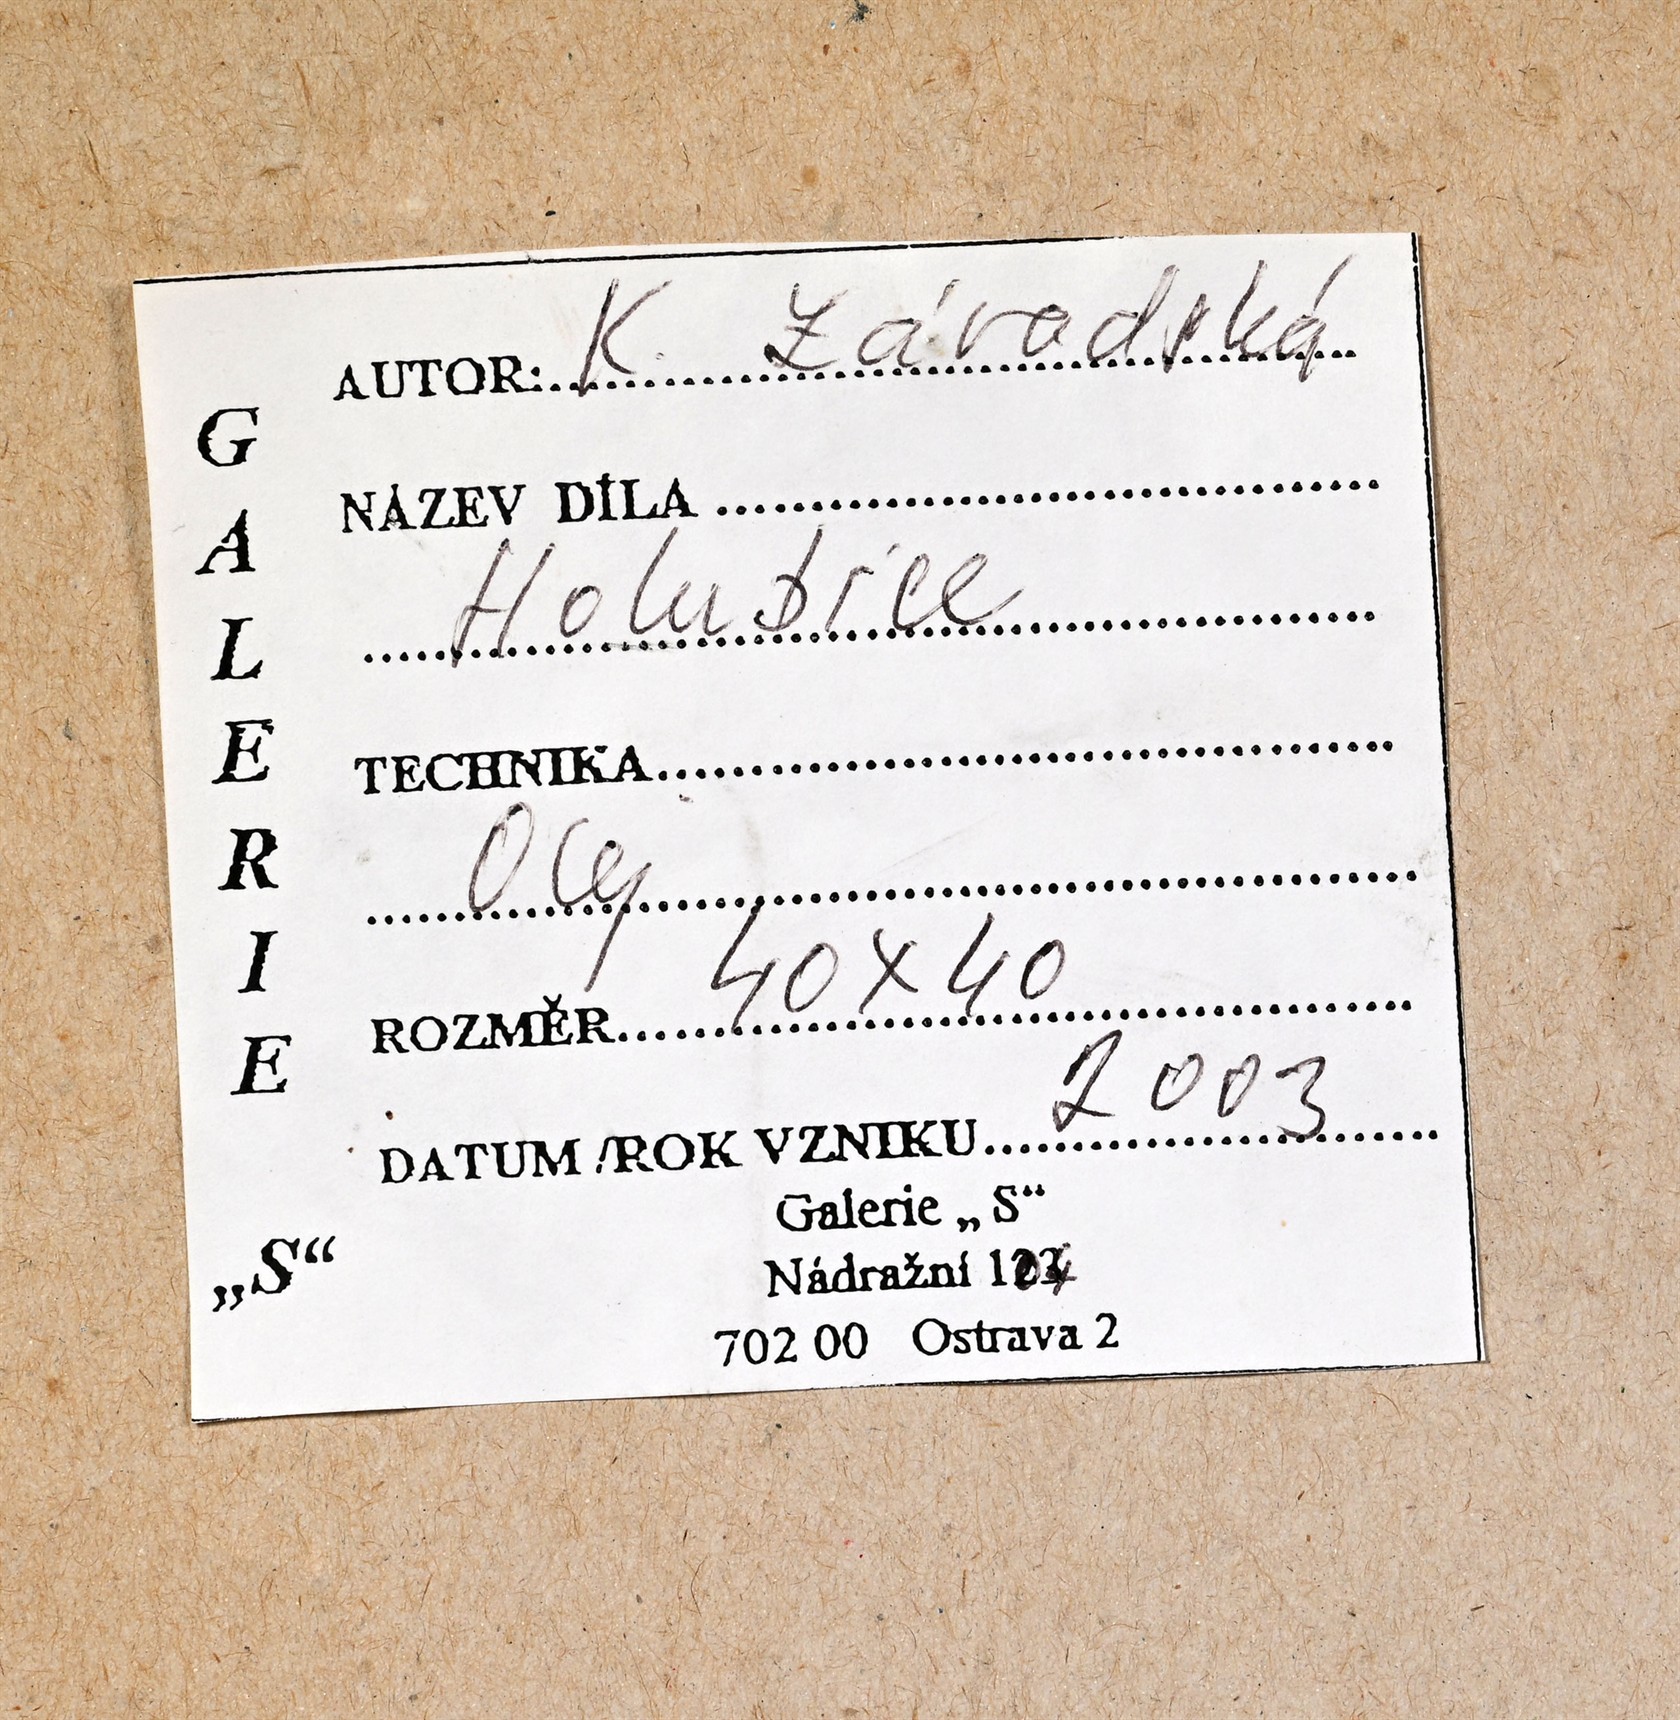 GALERIE „S“
AUTOR: K. Závadská
NÁZEV DÍLA
Holubice
TECHNIKA
Olej
ROZMĚR 40x40
DATUM/ROK VZNIKU 2003
Galerie „S“
Nádražní
702 00 Ostrava 2